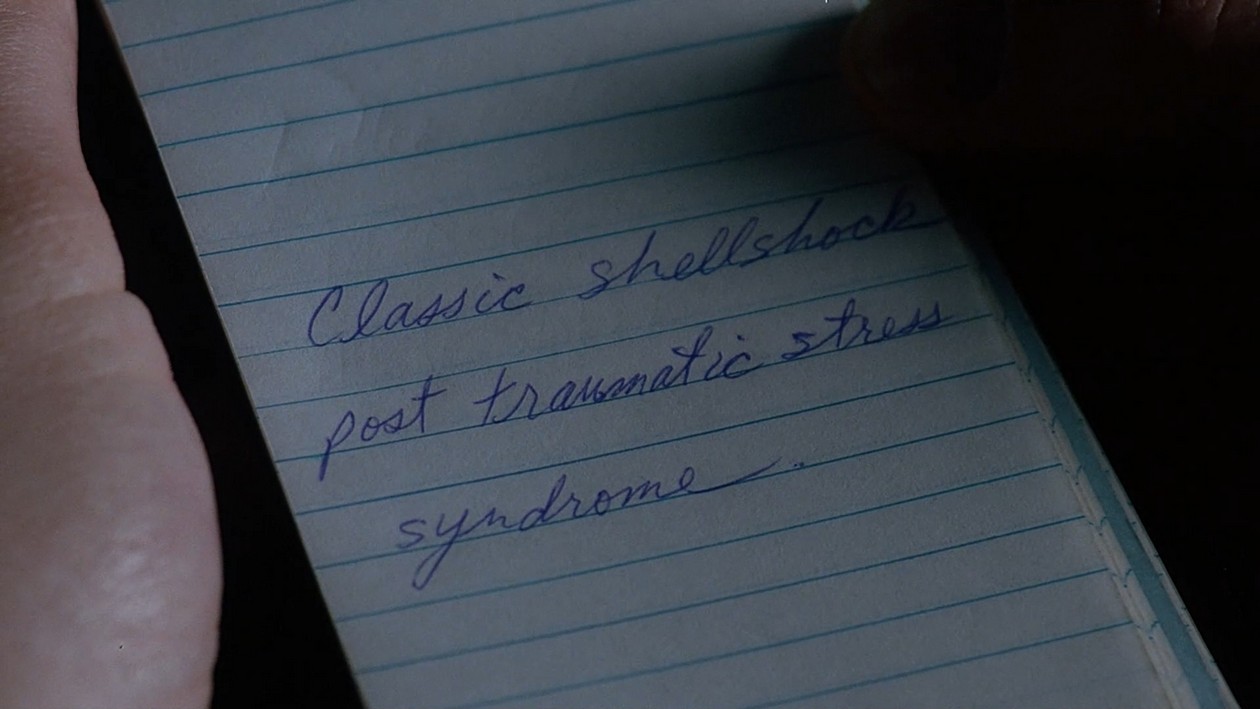 Classic shellshock
post traumatic stress
syndrome.